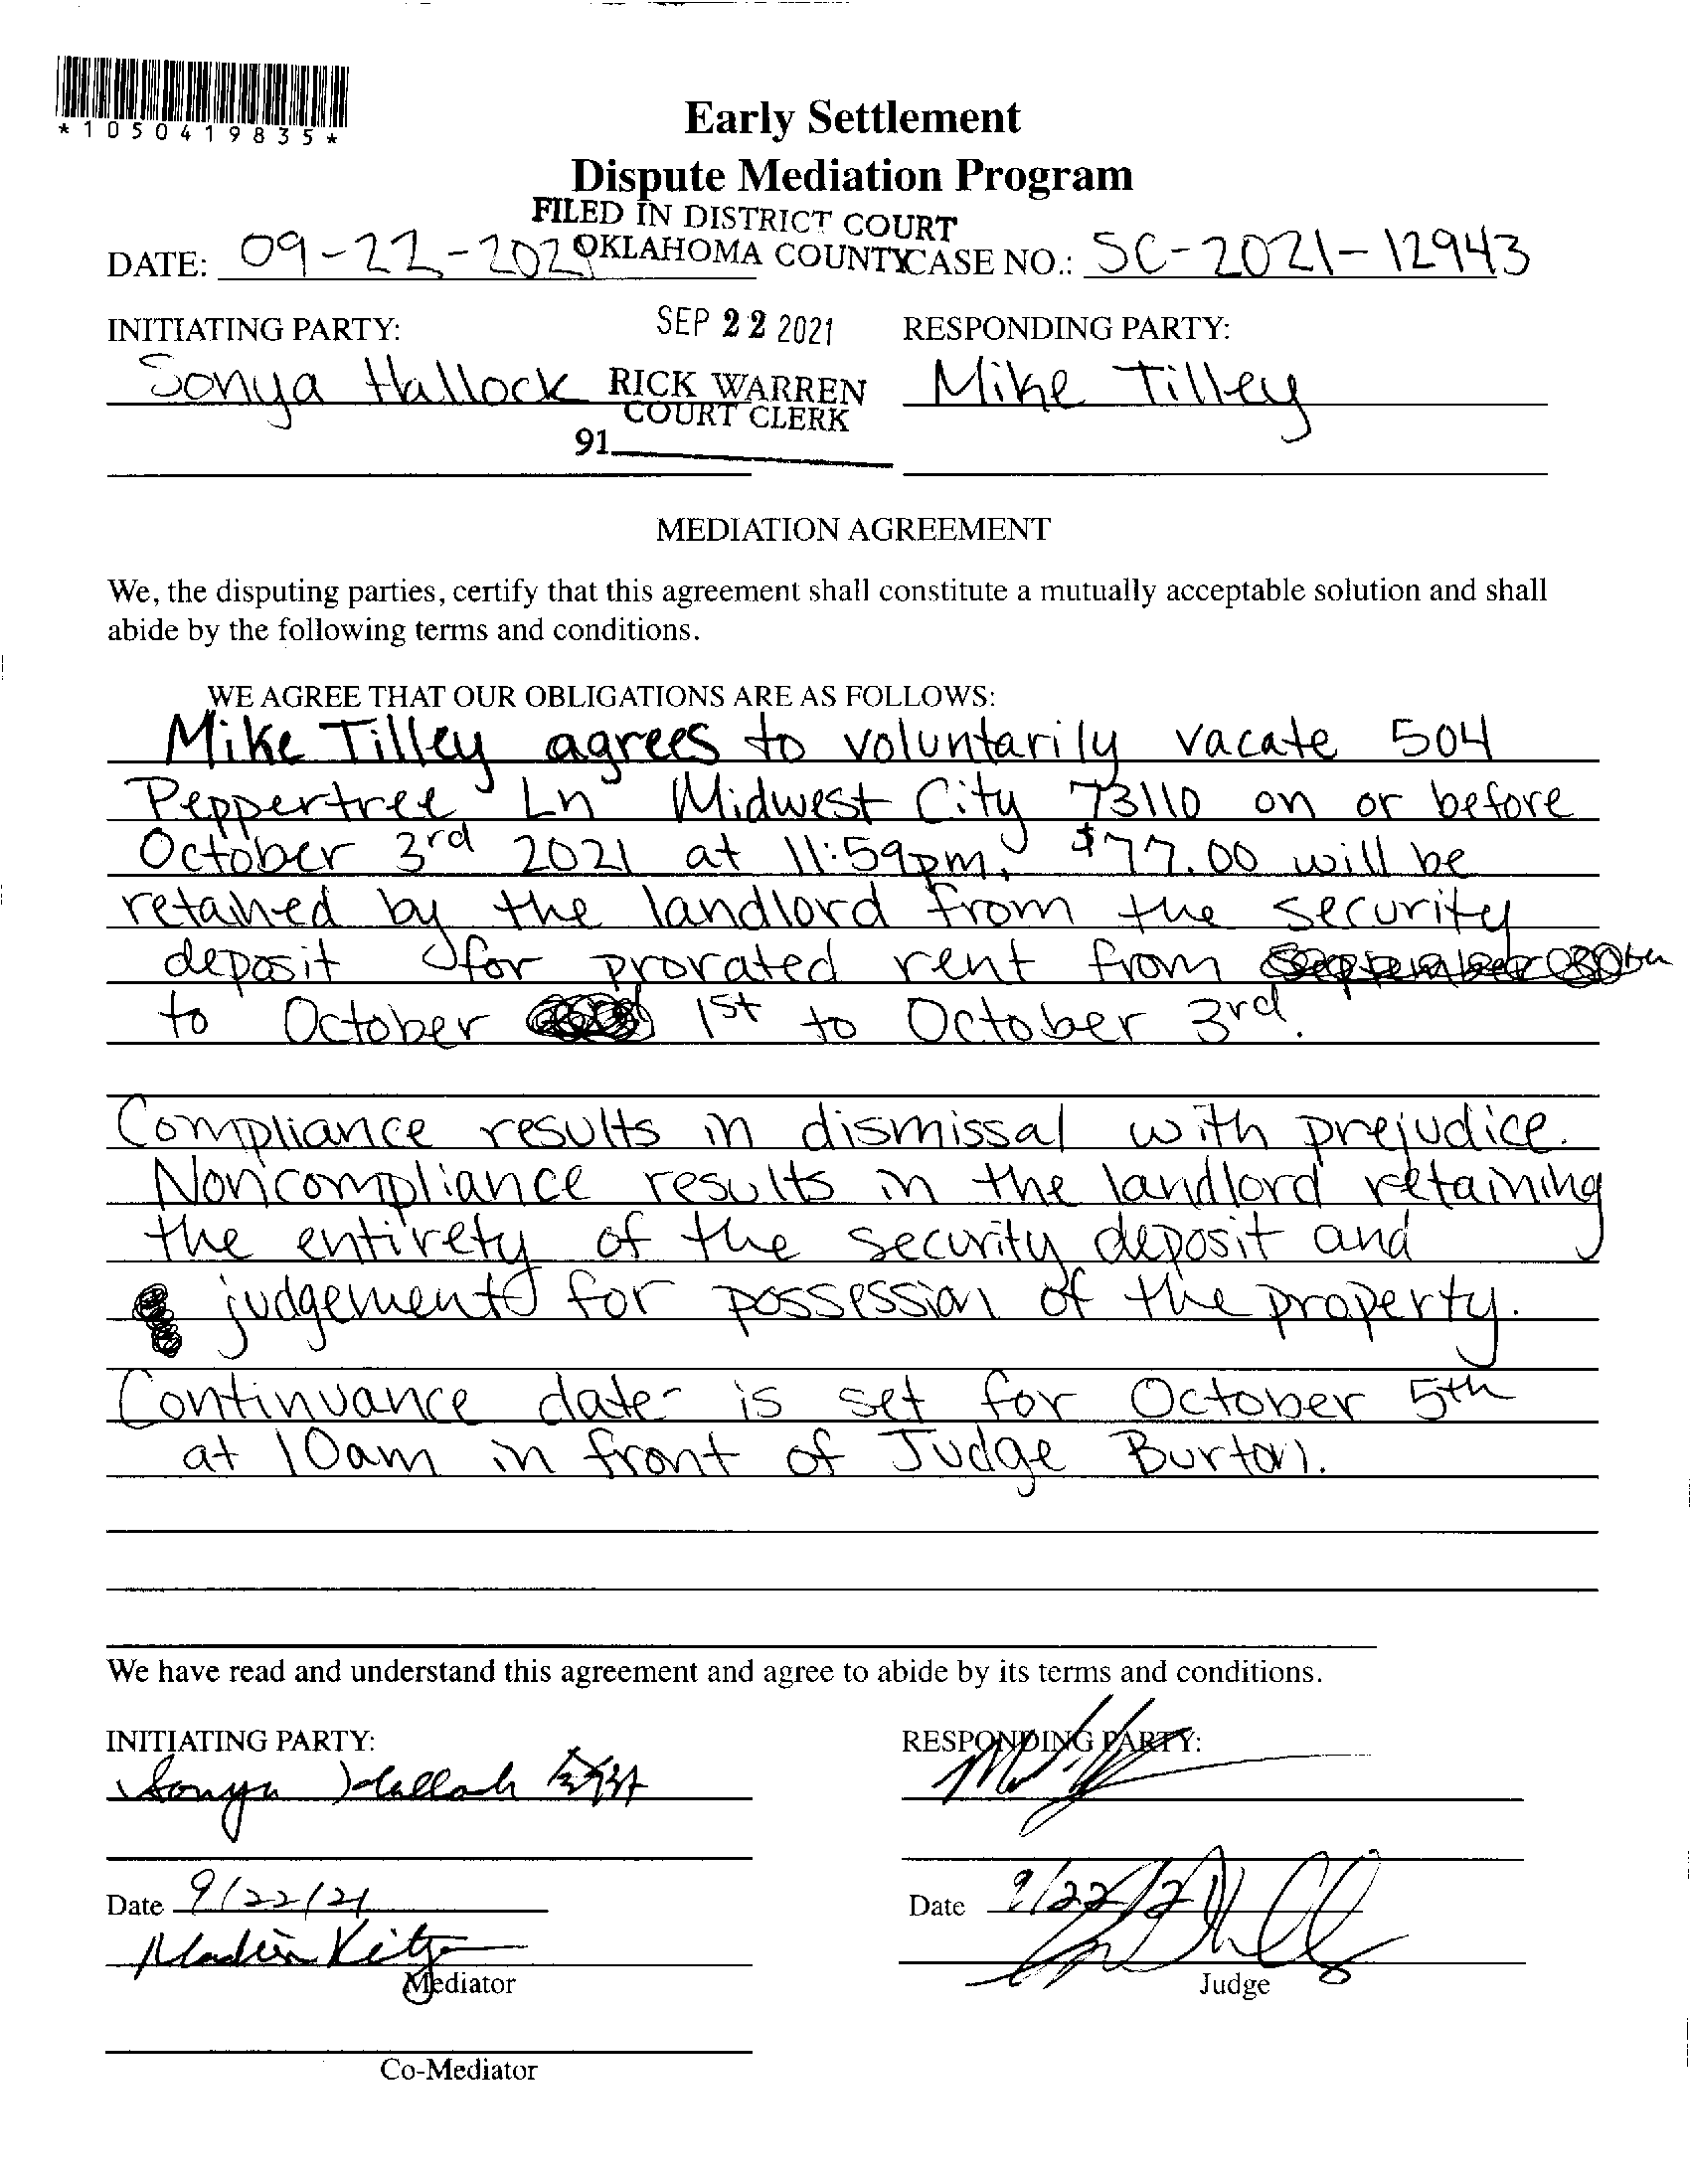 *1050419835*
Early Settlement
Dispute Mediation Program
FILED IN DISTRICT COURT
OKLAHOMA COUNTY
DATE: 09-22-2021 CASE NO.: SC-2021-12943
INITIATING PARTY: SEP 22 2021 RESPONDING PARTY:
Sonya Hallock RICK WARREN Mike Tilley
COURT CLERK
91
MEDIATION AGREEMENT
We, the disputing parties, certify that this agreement shall constitute a mutually acceptable solution and shall
abide by the following terms and conditions.
WE AGREE THAT OUR OBLIGATIONS ARE AS FOLLOWS:
Mike Tilley agrees to voluntarily vacate 504
Peppertree Ln Midwest City 73110 on or before
October 3rd 2021 at 11:59pm. $77.00 will be
retained by the landlord from the security
deposit for prorated rent from
to October 1st to October 3rd.
Compliance results in dismissal with prejudice.
Noncompliance results in the landlord retaining
the entirety of the security deposit and
judgement for possession of the property.
Continuance date is set for October 5th
at 10am in front of Judge Burton.
We have read and understand this agreement and agree to abide by its terms and conditions.
INITIATING PARTY: RESPONDING PARTY:
Sonya Hallock
Date 9/22/21 Date 9/22/2
Mediator Judge
Co-Mediator